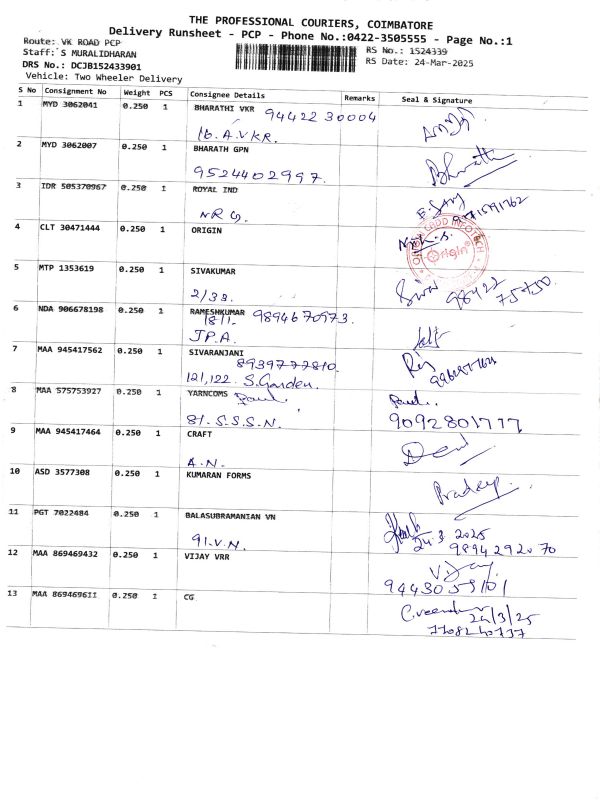 THE PROFESSIONAL COURIERS, COIMBATORE
Delivery Runsheet - PCP - Phone No.:0422-3505555 - Page No.:1
Route: VK ROAD PCP
RS No.: 1524339
Staff: S MURALIDHARAN
RS Date: 24-Mar-2025
DRS No.: DCJB152433901
Vehicle: Two Wheeler Delivery
S No Consignment No Weight PCS Consignee Details Remarks Seal & Signature
1 MYD 3062041 0.250 1 BHARATHI VKR 9442230004
16. A.VKR.
2 MYD 3062007 0.250 1 BHARATH GPN Bharath
9524402997.
3 IDR 505370967 0.250 1 ROYAL IND
NRG.
4 CLT 30471444 0.250 1 ORIGIN
Origin
5 MTP 1353619 0.250 1 SIVAKUMAR Siva 98422
2/33. 75750
6 NDA 906678198 0.250 1 RAMESHKUMAR 9894670973.
18/1.
J.P.A.
7 MAA 945417562 0.250 1 SIVARANJANI
8939777810
121,122. S.Garden.
8 MAA 575753927 0.250 1 YARNCOMS Paul. Paul..
81. S.S.S.N. 9092801777
9 MAA 945417464 0.250 1 CRAFT
A.N.
10 ASD 3577308 0.250 1 KUMARAN FORMS Pradeep
11 PGT 7022484 0.250 1 BALASUBRAMANIAN VN 24.3.2025
91.V.N. 9894292070
12 MAA 869469432 0.250 1 VIJAY VRR Vijay
9443059101
13 MAA 869469611 0.250 1 CG 24/3/25
7708240737